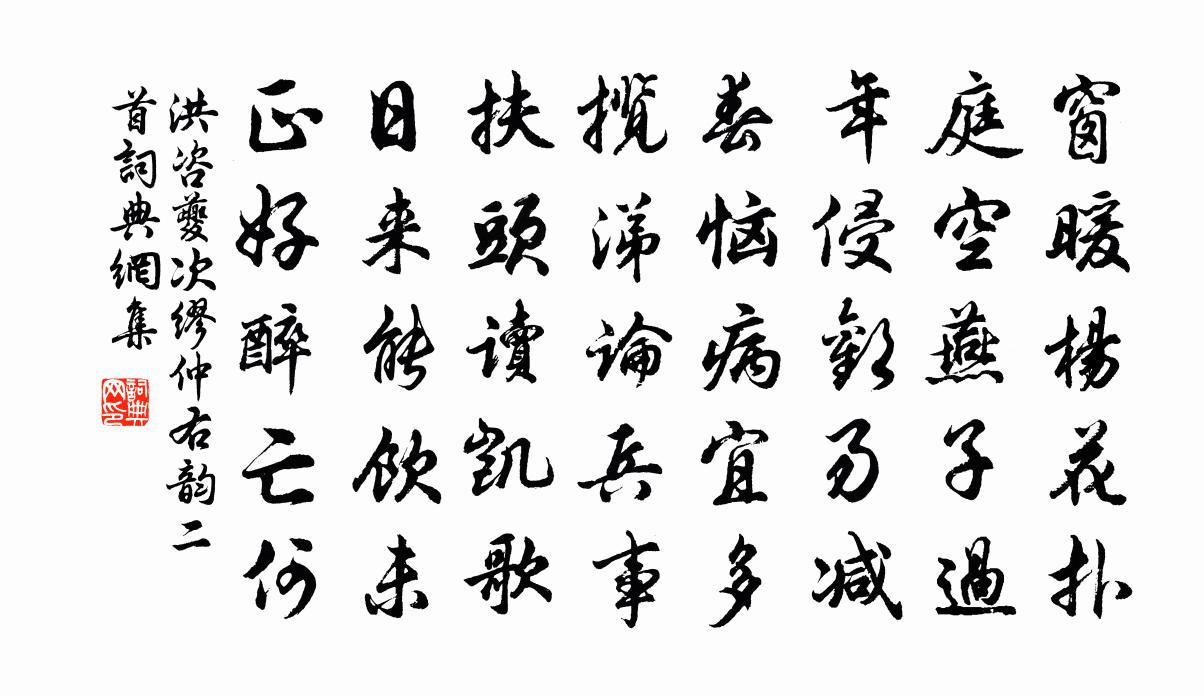 窗暖楊花扑
庭空燕子過
年侵歡易减
春恼病宜多
揽涕論兵事
扶頭讀凱歌
日来能飲未
正好醉亡何
洪咨夔次繆仲右韵二
首詞典網集